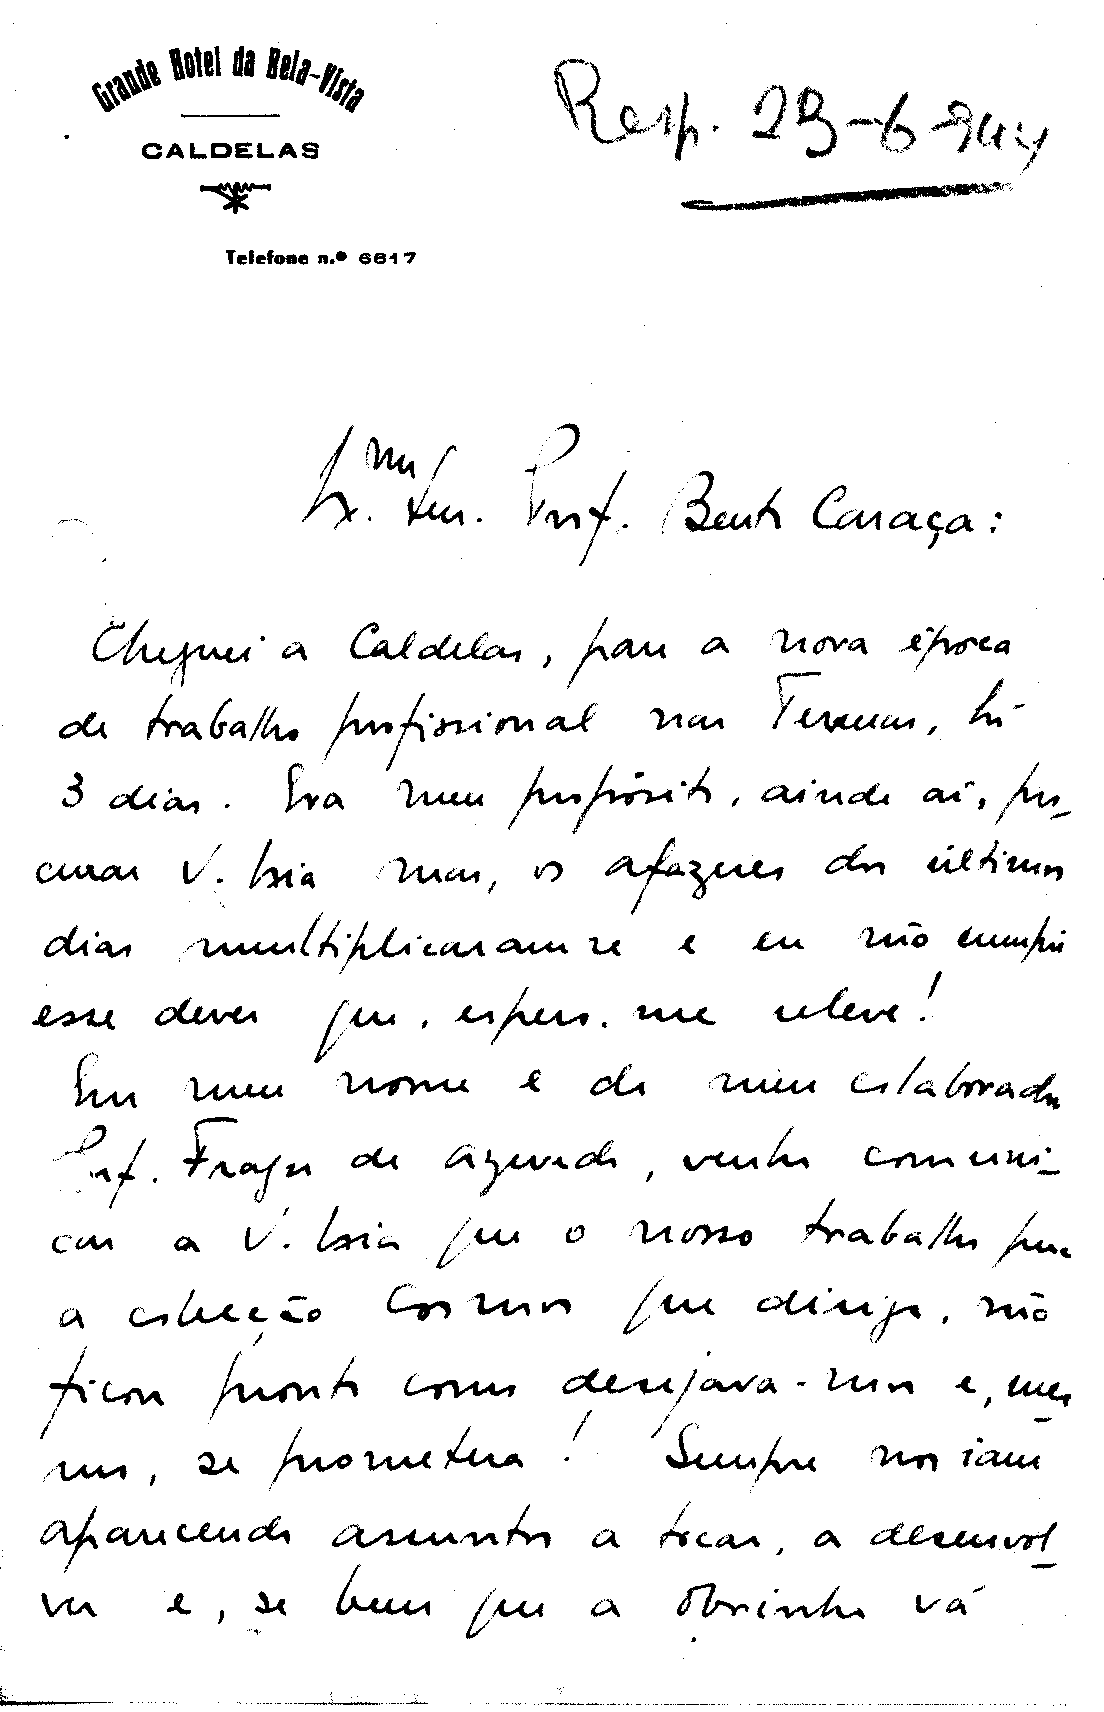 Grande Hotel da Bela-Vista
CALDELAS
Telefone n.º 6617
Resp. 29-6-944
Ex.mo Sen. Prof. Bento Caraça:
Cheguei a Caldelas, para a nova época
de trabalho profissional nas Termas, há
3 dias. Era meu propósito, ainda aí, pro-
curar V. Excia mas, os afazeres dos últimos
dias multiplicaram-se e eu não cumpri
esse dever que, espero, me releve!
Em meu nome e do meu colaborador
Prof. Fraga de Azevedo, venho comuni-
car a V. Excia que o nosso trabalho para
a colecção Cosmos que dirige, não
ficou pronto como desejava-mos e, mes-
mo, se prometera! Sempre nos iam
aparecendo assuntos a tocar, a desenvol-
ver e, se bem que a obrinha vá